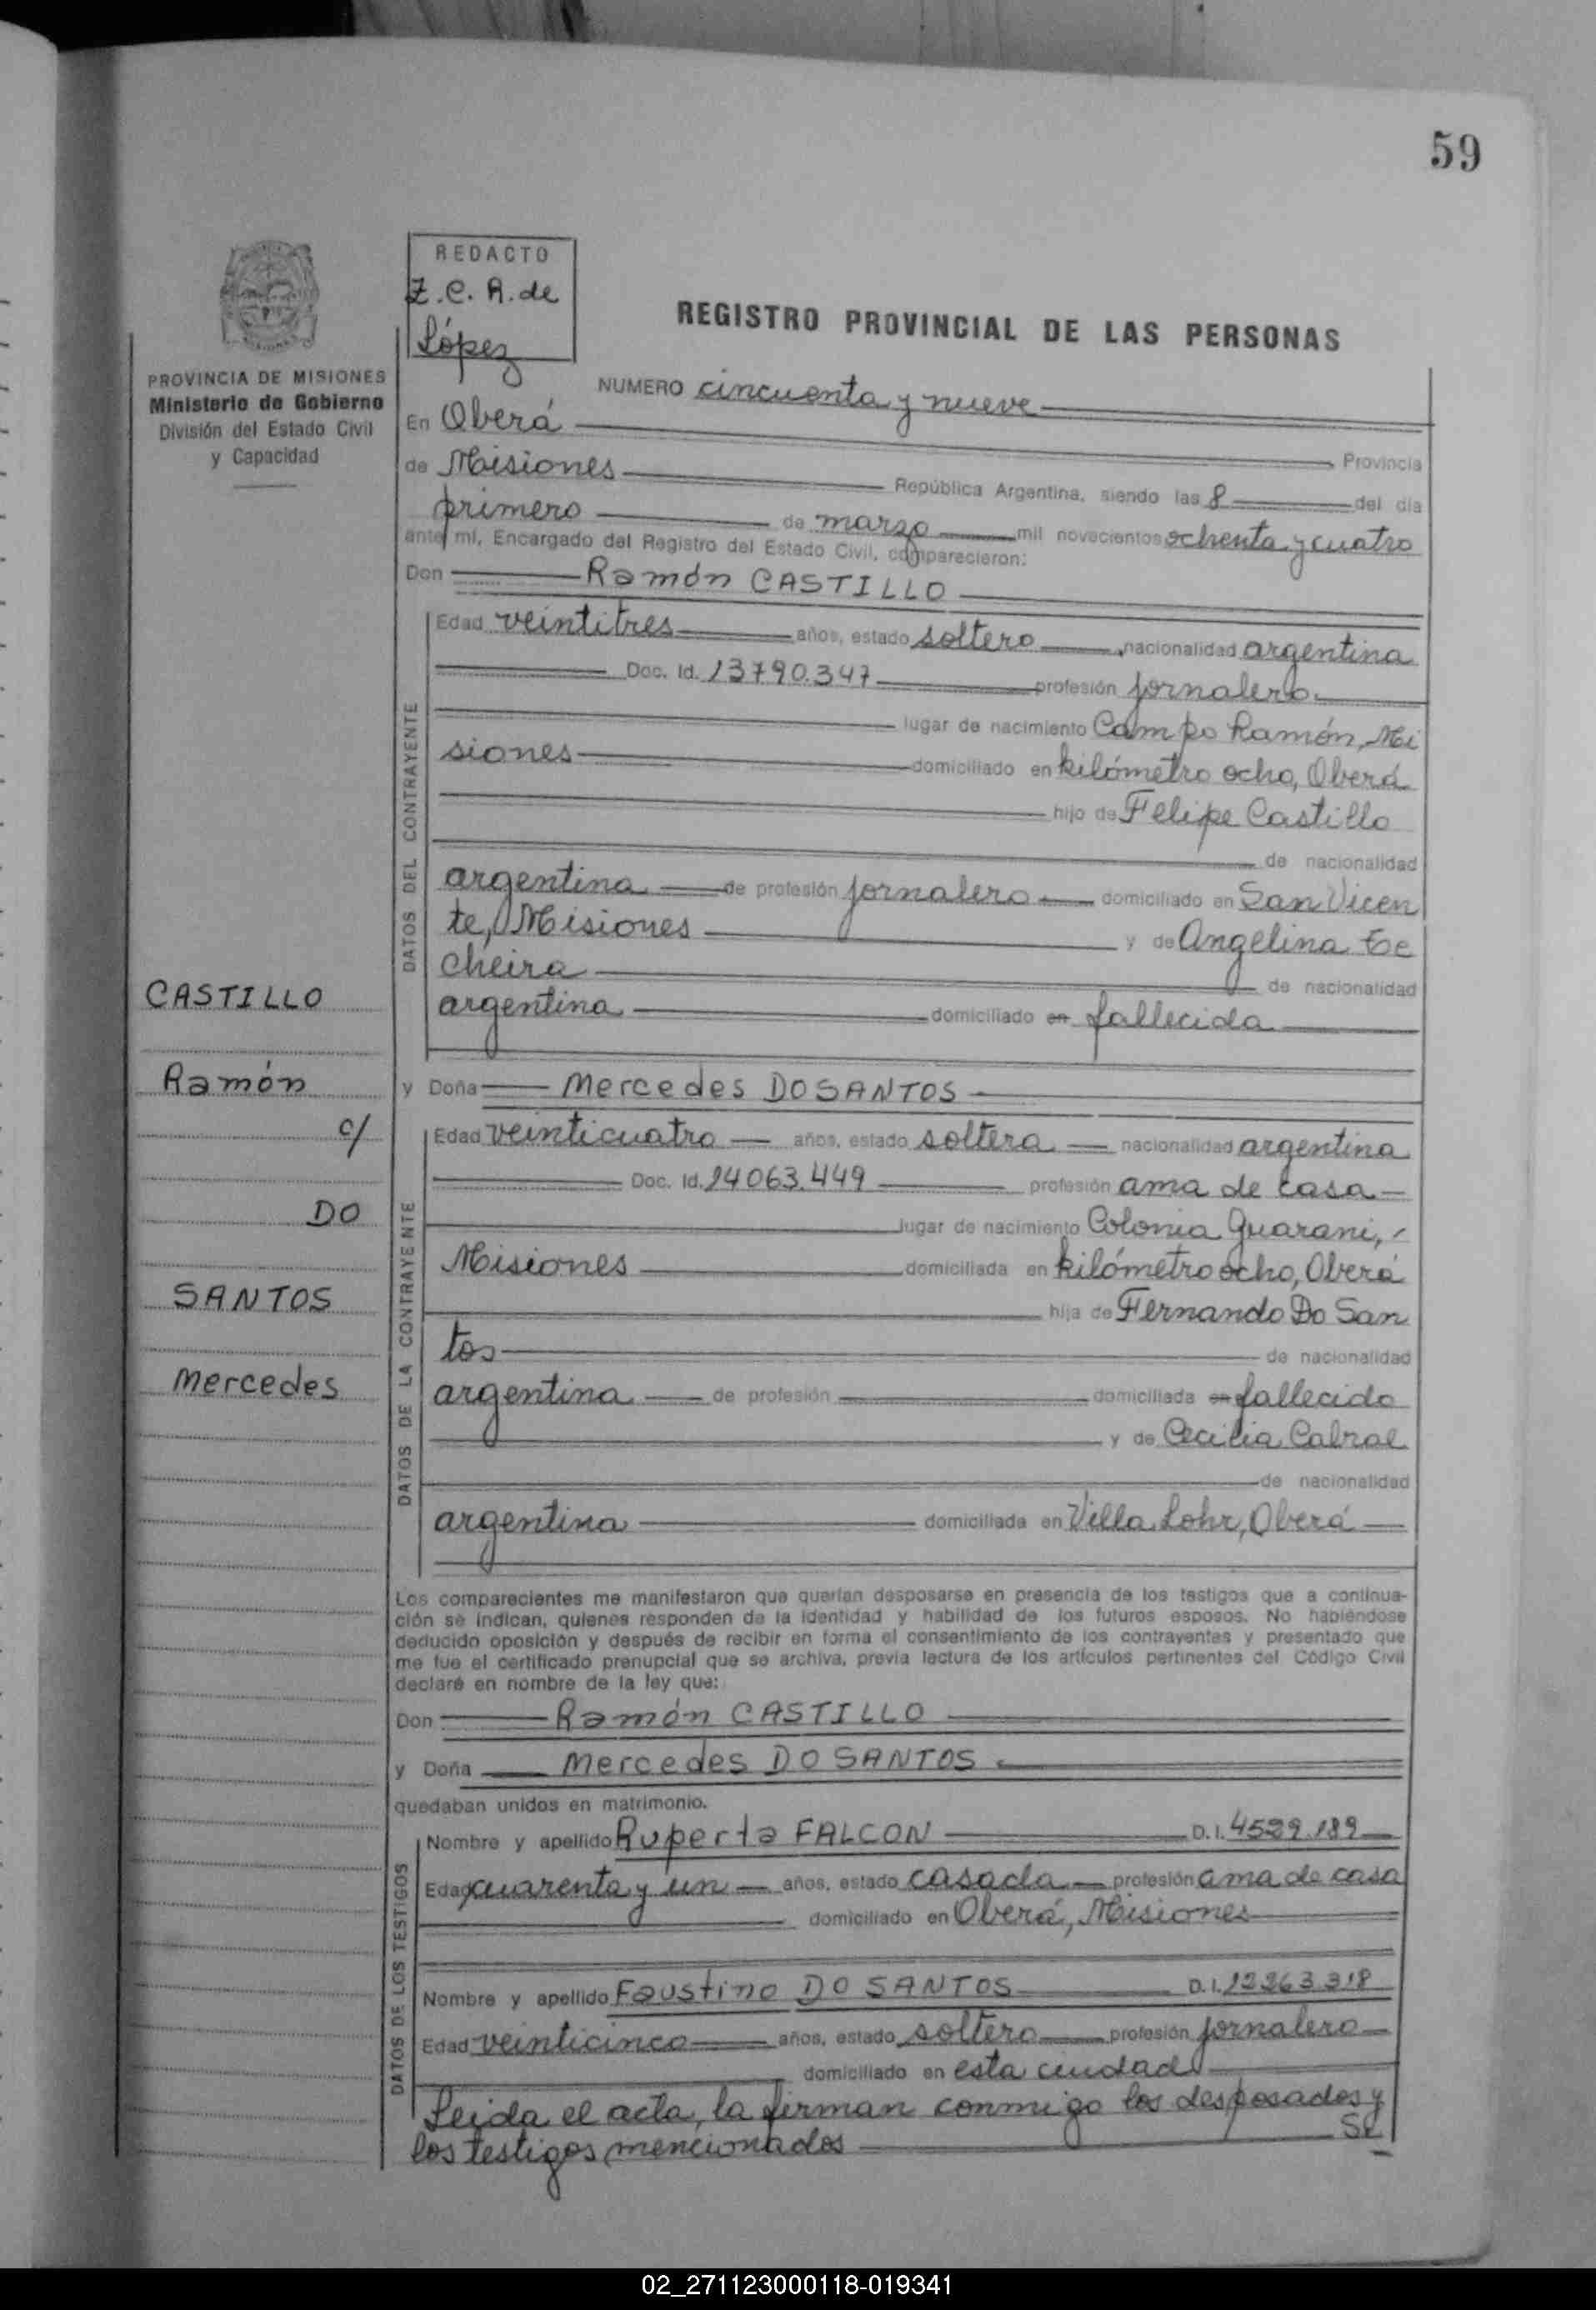 59
REDACTO
Z.C.R. de
López
REGISTRO PROVINCIAL DE LAS PERSONAS
PROVINCIA DE MISIONES
Ministerio de Gobierno
División del Estado Civil
y Capacidad
NUMERO cincuenta y nueve
En Oberá Provincia
de Misiones República Argentina, siendo las 8 del día
primero de marzo mil novecientos ochenta y cuatro
ante mí, Encargado del Registro del Estado Civil, comparecieron:
Don Ramón CASTILLO
DATOS DEL CONTRAYENTE
Edad veintitres años, estado soltero nacionalidad argentina
Doc. Id. 13790.347 profesión jornalero
lugar de nacimiento Campo Ramón, Mi
siones domiciliado en kilómetro ocho, Oberá
hijo de Felipe Castillo
de nacionalidad
argentina de profesión jornalero domiciliado en San Vicen
te, Misiones y de Angelina
cheira de nacionalidad
argentina domiciliado en fallecida
CASTILLO
Ramón
c/
DO
SANTOS
Mercedes
y Doña Mercedes DO SANTOS
DATOS DE LA CONTRAYENTE
Edad veinticuatro años, estado soltera nacionalidad argentina
Doc. Id. 14063.449 profesión ama de casa
lugar de nacimiento Colonia Guarani,
Misiones domiciliada en kilómetro ocho, Oberá
hija de Fernando Do San
tos de nacionalidad
argentina de profesión domiciliada en fallecido
y de Cecilia Cabral
de nacionalidad
argentina domiciliada en Villa Lohr, Oberá
Los comparecientes me manifestaron que querían desposarse en presencia de los testigos que a continua-
ción se indican, quienes responden de la identidad y habilidad de los futuros esposos. No habiéndose
deducido oposición y después de recibir en forma el consentimiento de los contrayentes y presentado que
me fue el certificado prenupcial que se archiva, previa lectura de los artículos pertinentes del Código Civil
declaré en nombre de la ley que:
Don Ramón CASTILLO
y Doña Mercedes DO SANTOS
quedaban unidos en matrimonio.
DATOS DE LOS TESTIGOS
Nombre y apellido Ruperta FALCON D.I. 4529.189
Edad cuarenta y un años, estado casada profesión ama de casa
domiciliado en Oberá, Misiones
Nombre y apellido Faustino DO SANTOS D.I. 12263.318
Edad veinticinco años, estado soltero profesión jornalero
domiciliado en esta ciudad
Leida el acta, la firman conmigo los desposados y
los testigos mencionados
02_271123000118-019341